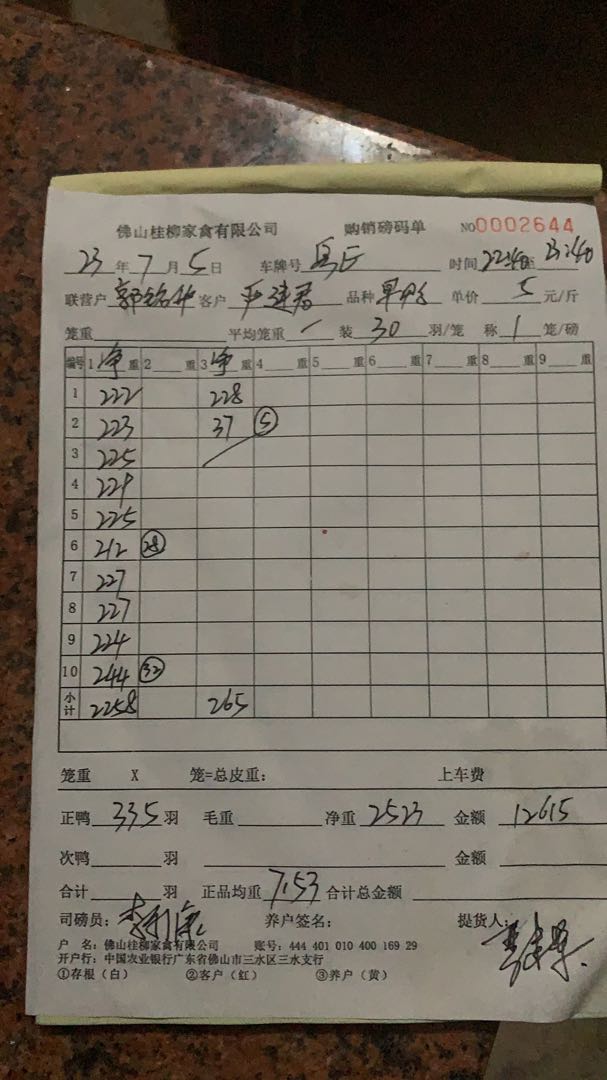 佛山桂柳家禽有限公司 购销磅码单 NO0002644
23年7月5日 车牌号 时间22:40至23:40
联营户 郭铭华 客户 严建君 品种 单价 5 元/斤
笼重 平均笼重 一 装 30 羽/笼 称 1 笼/磅
编号 1 净 重 2 重 3 净 重 4 重 5 重 6 重 7 重 8 重 9 重
1 222 228
2 223 37 ⑤
3 225
4 229
5 225
6 212 ㉘
7 227
8 227
9 224
10 244 ㉜
小计 2258 265
笼重 X 笼=总皮重: 上车费
正鸭 335 羽 毛重 净重 2523 金额 12615
次鸭 羽 金额
合计 羽 正品均重 7.53 合计总金额
司磅员: 养户签名: 提货人:
户 名: 佛山桂柳家禽有限公司 账号: 444 401 010 400 169 29
开户行: 中国农业银行广东省佛山市三水区三水支行
①存根(白) ②客户(红) ③养户(黄)